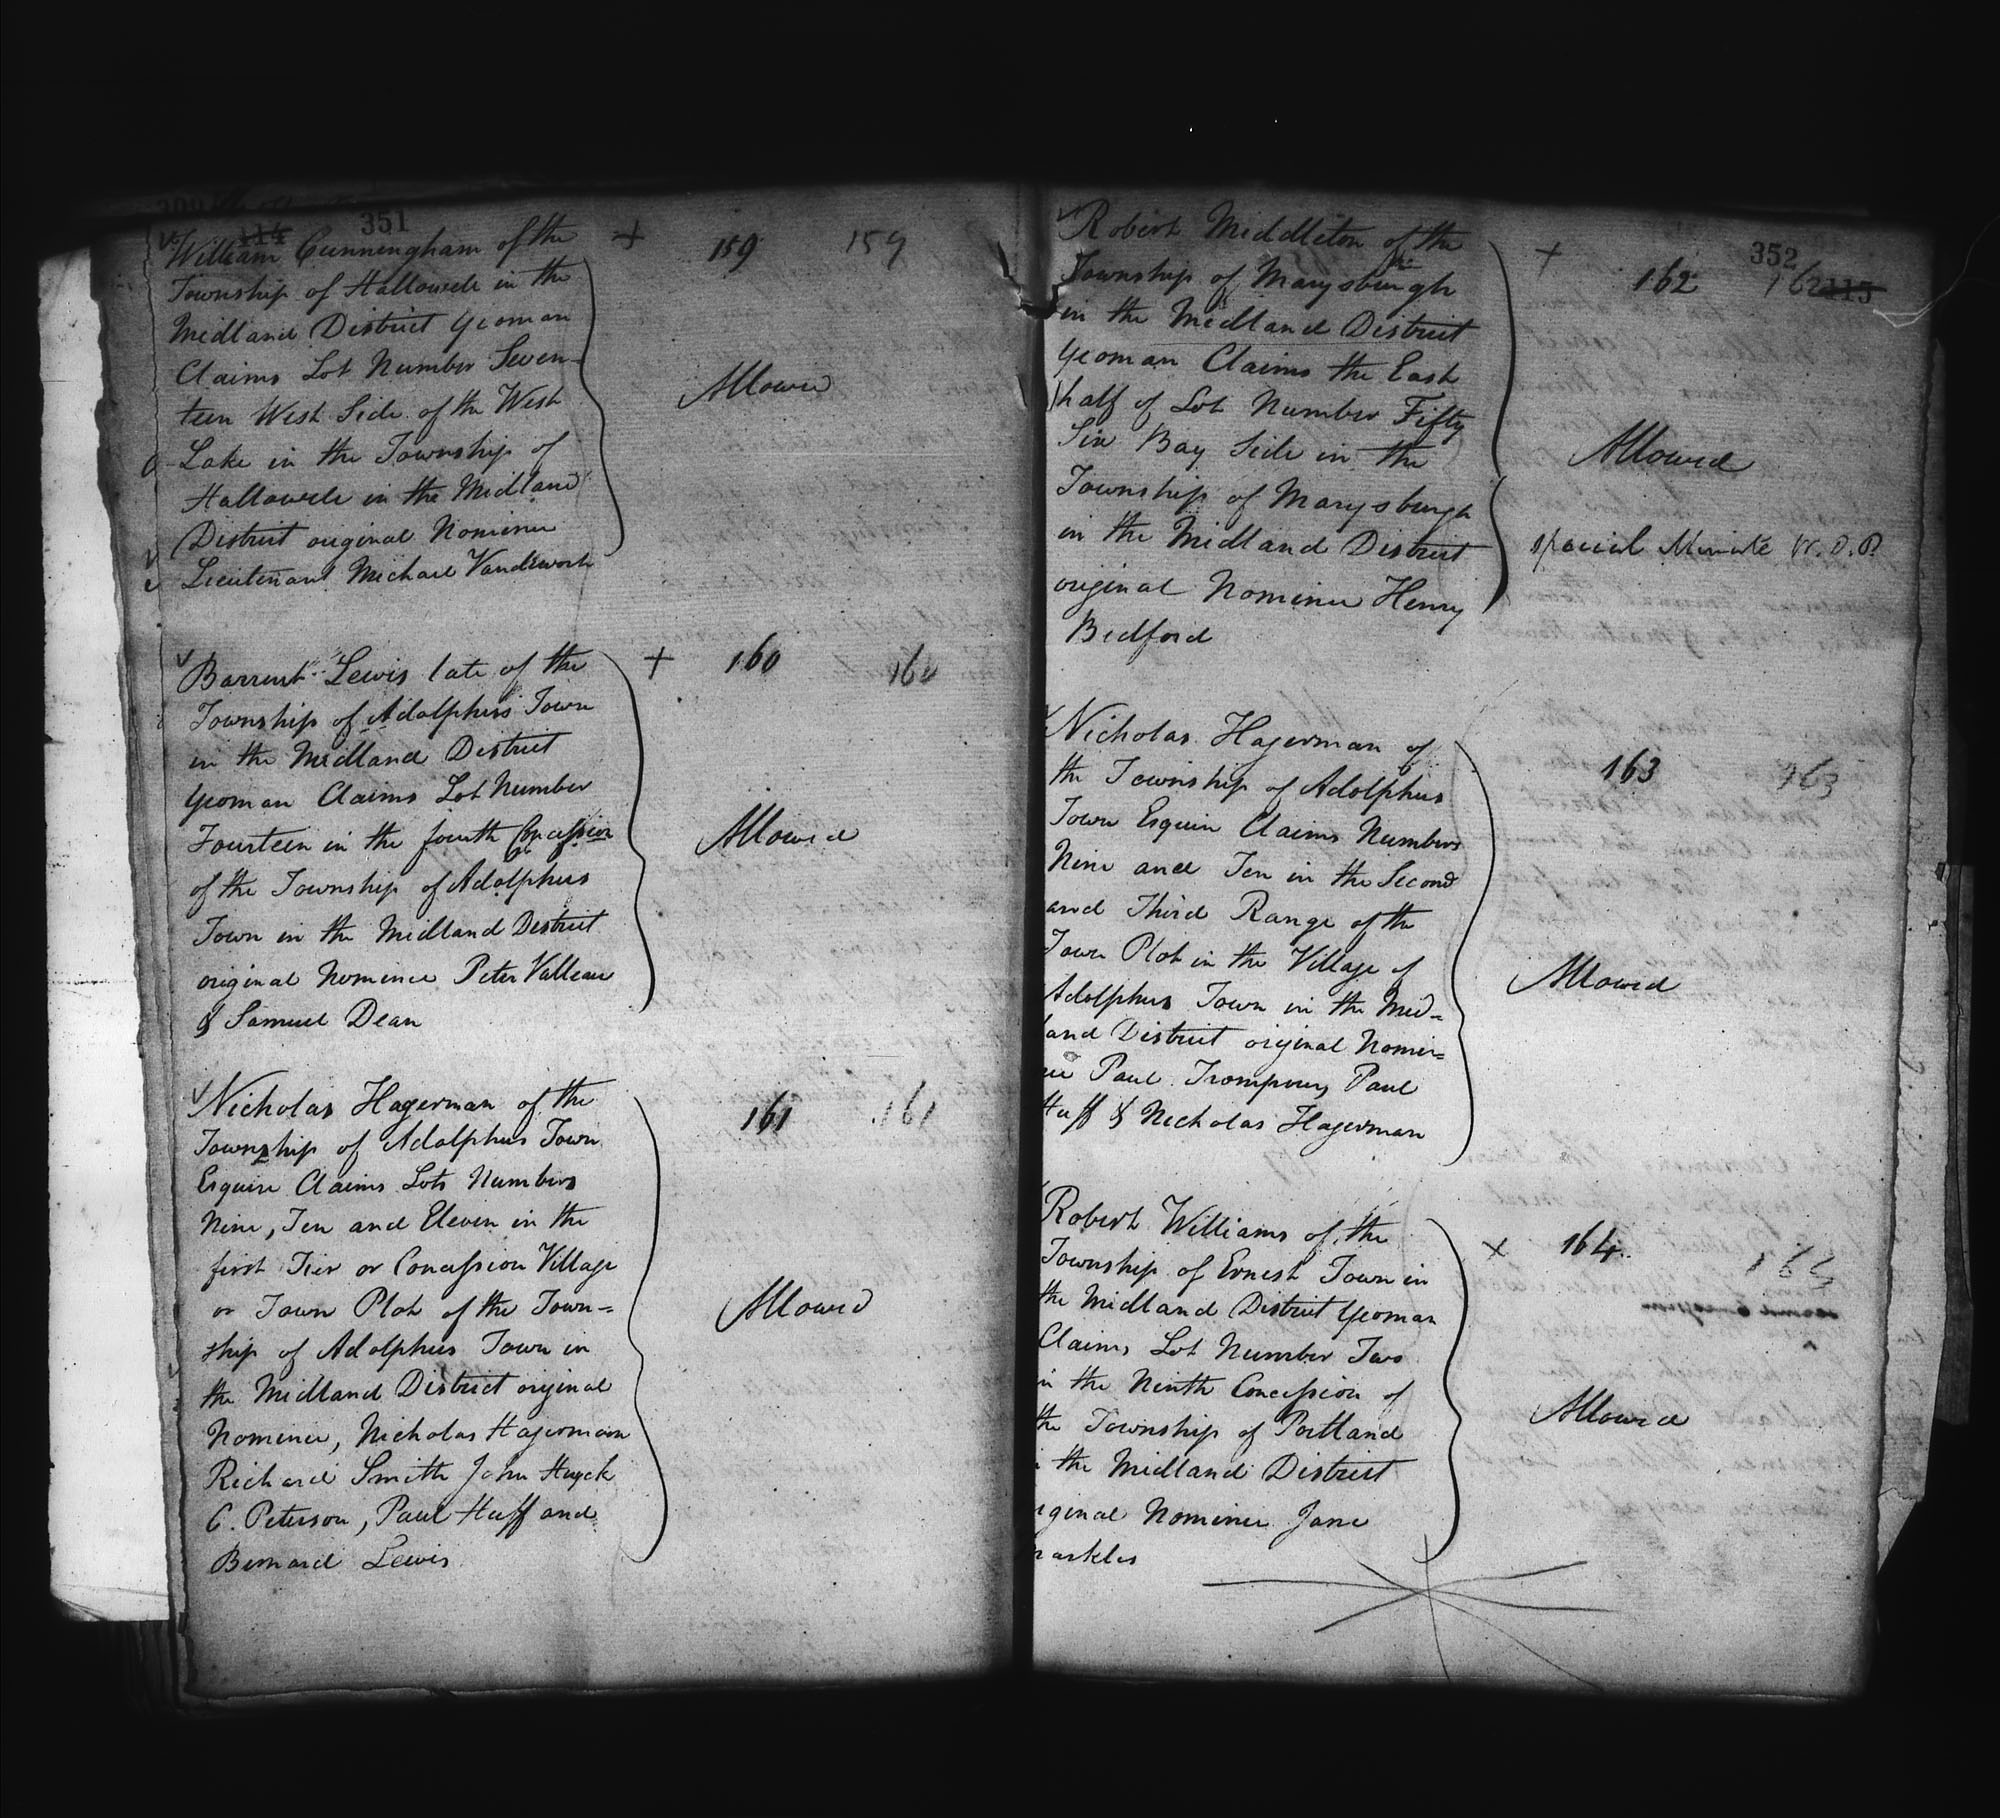 351
114
William Cunningham of the
Township of Hallowell in the
Midland District Yeoman
Claims Lot Number Seven-
teen West Side of the West
Lake in the Township of
Hallowell in the Midland
District original Nominee
Lieutenant Michael Vanderworth
+ 159 159
Allowed
Barrent Lewis late of the
Township of Adolphus Town
in the Midland District
Yeoman Claims Lot Number
Fourteen in the fourth Concession
of the Township of Adolphus
Town in the Midland District
original Nominee Peter Valleau
& Samuel Dean
+ 160 160
Allowed
Nicholas Hagerman of the
Township of Adolphus Town
Esquire Claims Lots Numbers
Nine, Ten and Eleven in the
first Tier or Concession Village
or Town Plot of the Town=
ship of Adolphus Town in
the Midland District original
Nominee, Nicholas Hagerman
Richard Smith John Huyck
C. Peterson, Paul Huff and
Bernard Lewis
161 161
Allowed
352
115
Robert Middleton of the
Township of Marysburgh
in the Midland District
Yeoman Claims the East
half of Lot Number Fifty
Six Bay Side in the
Township of Marysburgh
in the Midland District
original Nominee Henry
Bedford
+ 162 162
Allowed
special Minute W. D. P.
Nicholas Hagerman of
the Township of Adolphus
Town Esquire Claims Numbers
Nine and Ten in the Second
and Third Range of the
Town Plot in the Village of
Adolphus Town in the Mid=
land District original Nomi=
nee Paul Trompour, Paul
Huff & Nicholas Hagerman
163 163
Allowed
Robert Williams of the
Township of Ernest Town in
the Midland District Yeoman
Claims Lot Number Two
in the Ninth Concession of
the Township of Portland
the Midland District
iginal Nominee Jane
arkles
x 164 164
Allowed